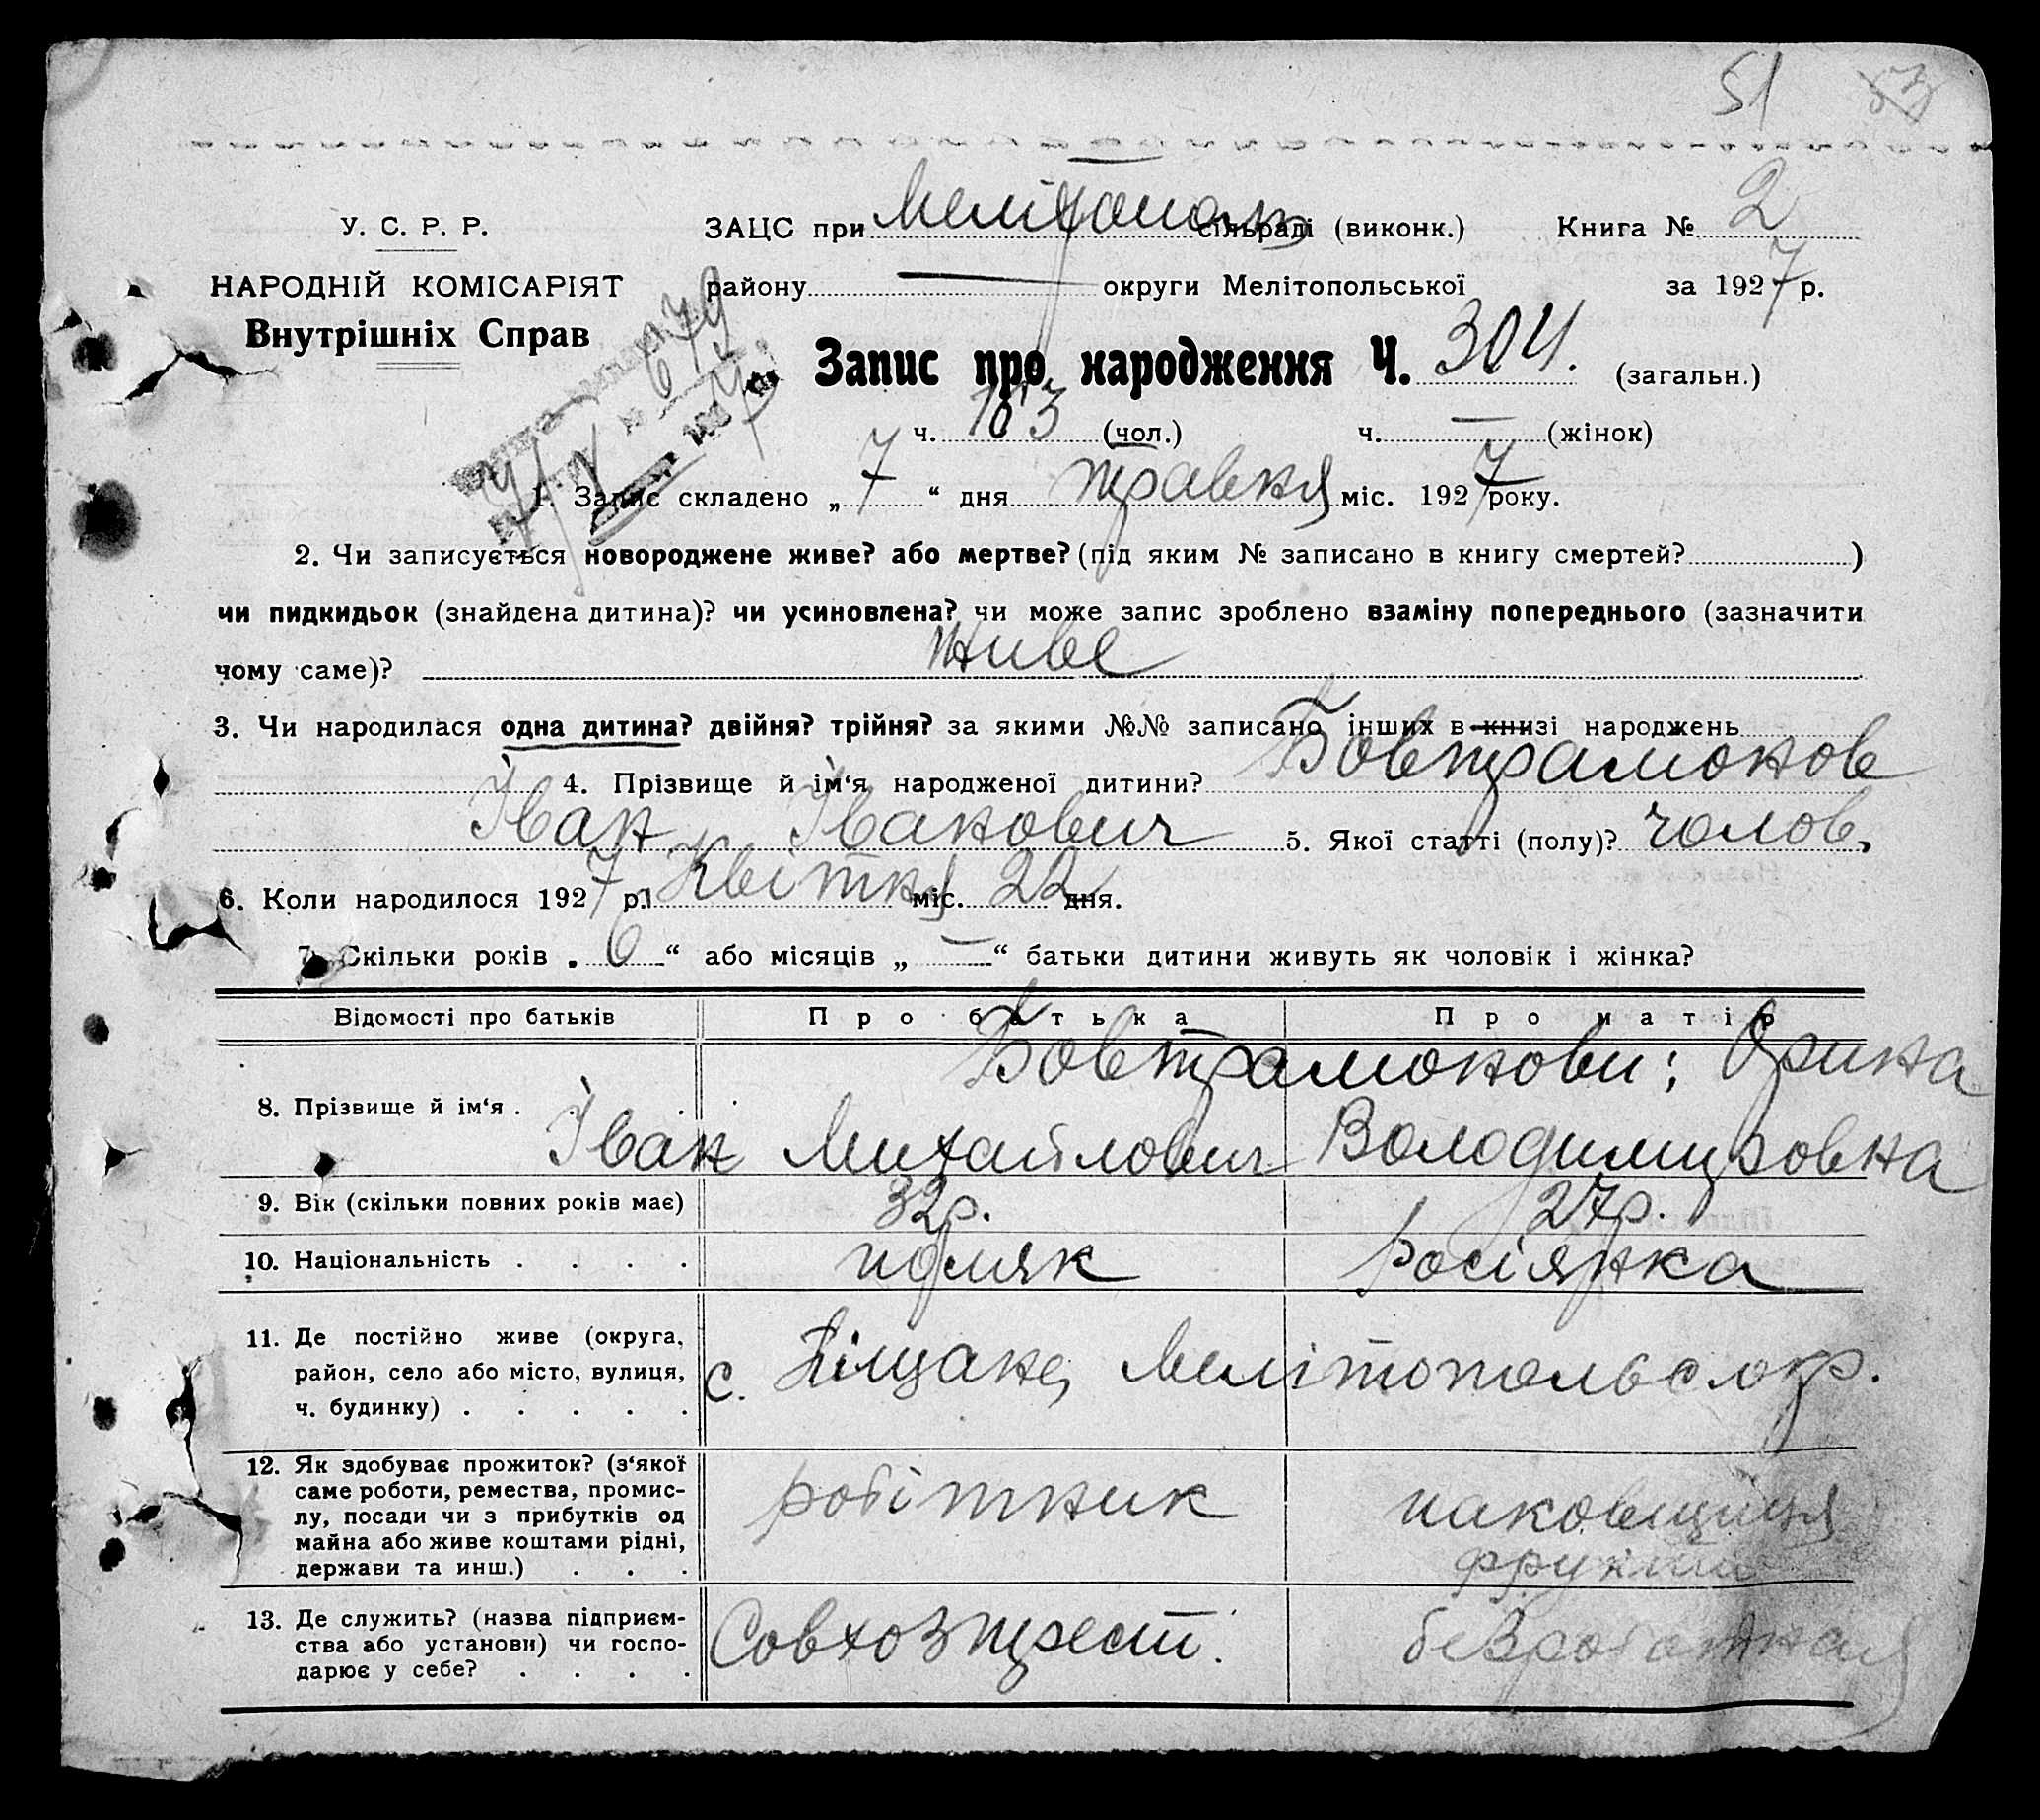 51 53
У. С. Р. Р.
НАРОДНІЙ КОМІСАРІЯТ
Внутрішніх Справ
ЗАЦС при Мелітополь сільраді (виконк.) Книга № 2
району — округи Мелітопольської за 1927 р.
679
Запис про народження Ч. 304. (загальн.)
ч. 183 (чол.) ч. — (жінок)
1. Запис складено „ 7 “ дня травня міс. 1927 року.
2. Чи записується новороджене живе? або мертве? (під яким № записано в книгу смертей? )
чи пидкидьок (знайдена дитина)? чи усиновлена? чи може запис зроблено взаміну попереднього (зазначити
чому саме)? живе
3. Чи народилася одна дитина? двійня? трійня? за якими №№ записано інших в книзі народжень
4. Прізвище й ім‘я народженої дитини? Бовтрамонов
Іван Іванович 5. Якої статті (полу)? чолов.
6. Коли народилося 1927 р. Квітня міс. 22 дня.
7. Скільки років „ 6 “ або місяців „ — “ батьки дитини живуть як чоловік і жінка?
Відомості про батьків Про батька Про матір
8. Прізвище й ім‘я . Бовтрамонови; Орина
Іван Михайлович Володимировна
9. Вік (скільки повних років має) 32 р. 27 р.
10. Національність . . . . поляк росіянка
11. Де постійно живе (округа,
район, село або місто, вулиця,
ч. будинку) . . . . .
с. Піщане, Мелітопольс. окр.
12. Як здобуває прожиток? (з‘якої
саме роботи, ремества, промис-
лу, посади чи з прибутків од
майна або живе коштами рідні,
держави та инш.) . . .
робітник паковщиця
фрукти
13. Де служить? (назва підприєм-
ства або установи) чи госпо-
дарює у себе? . . . .
Совхозтрест. безработная